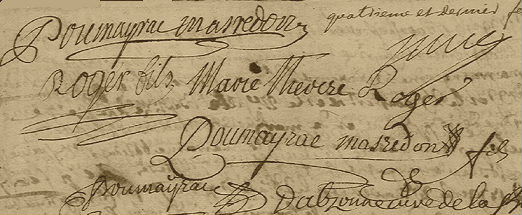 Poumayrac masredon quatrieme et dernier f
Roger fils Marie Therese Roger
Poumayrac masredon fils
poumayrac Dalbonne cure de la